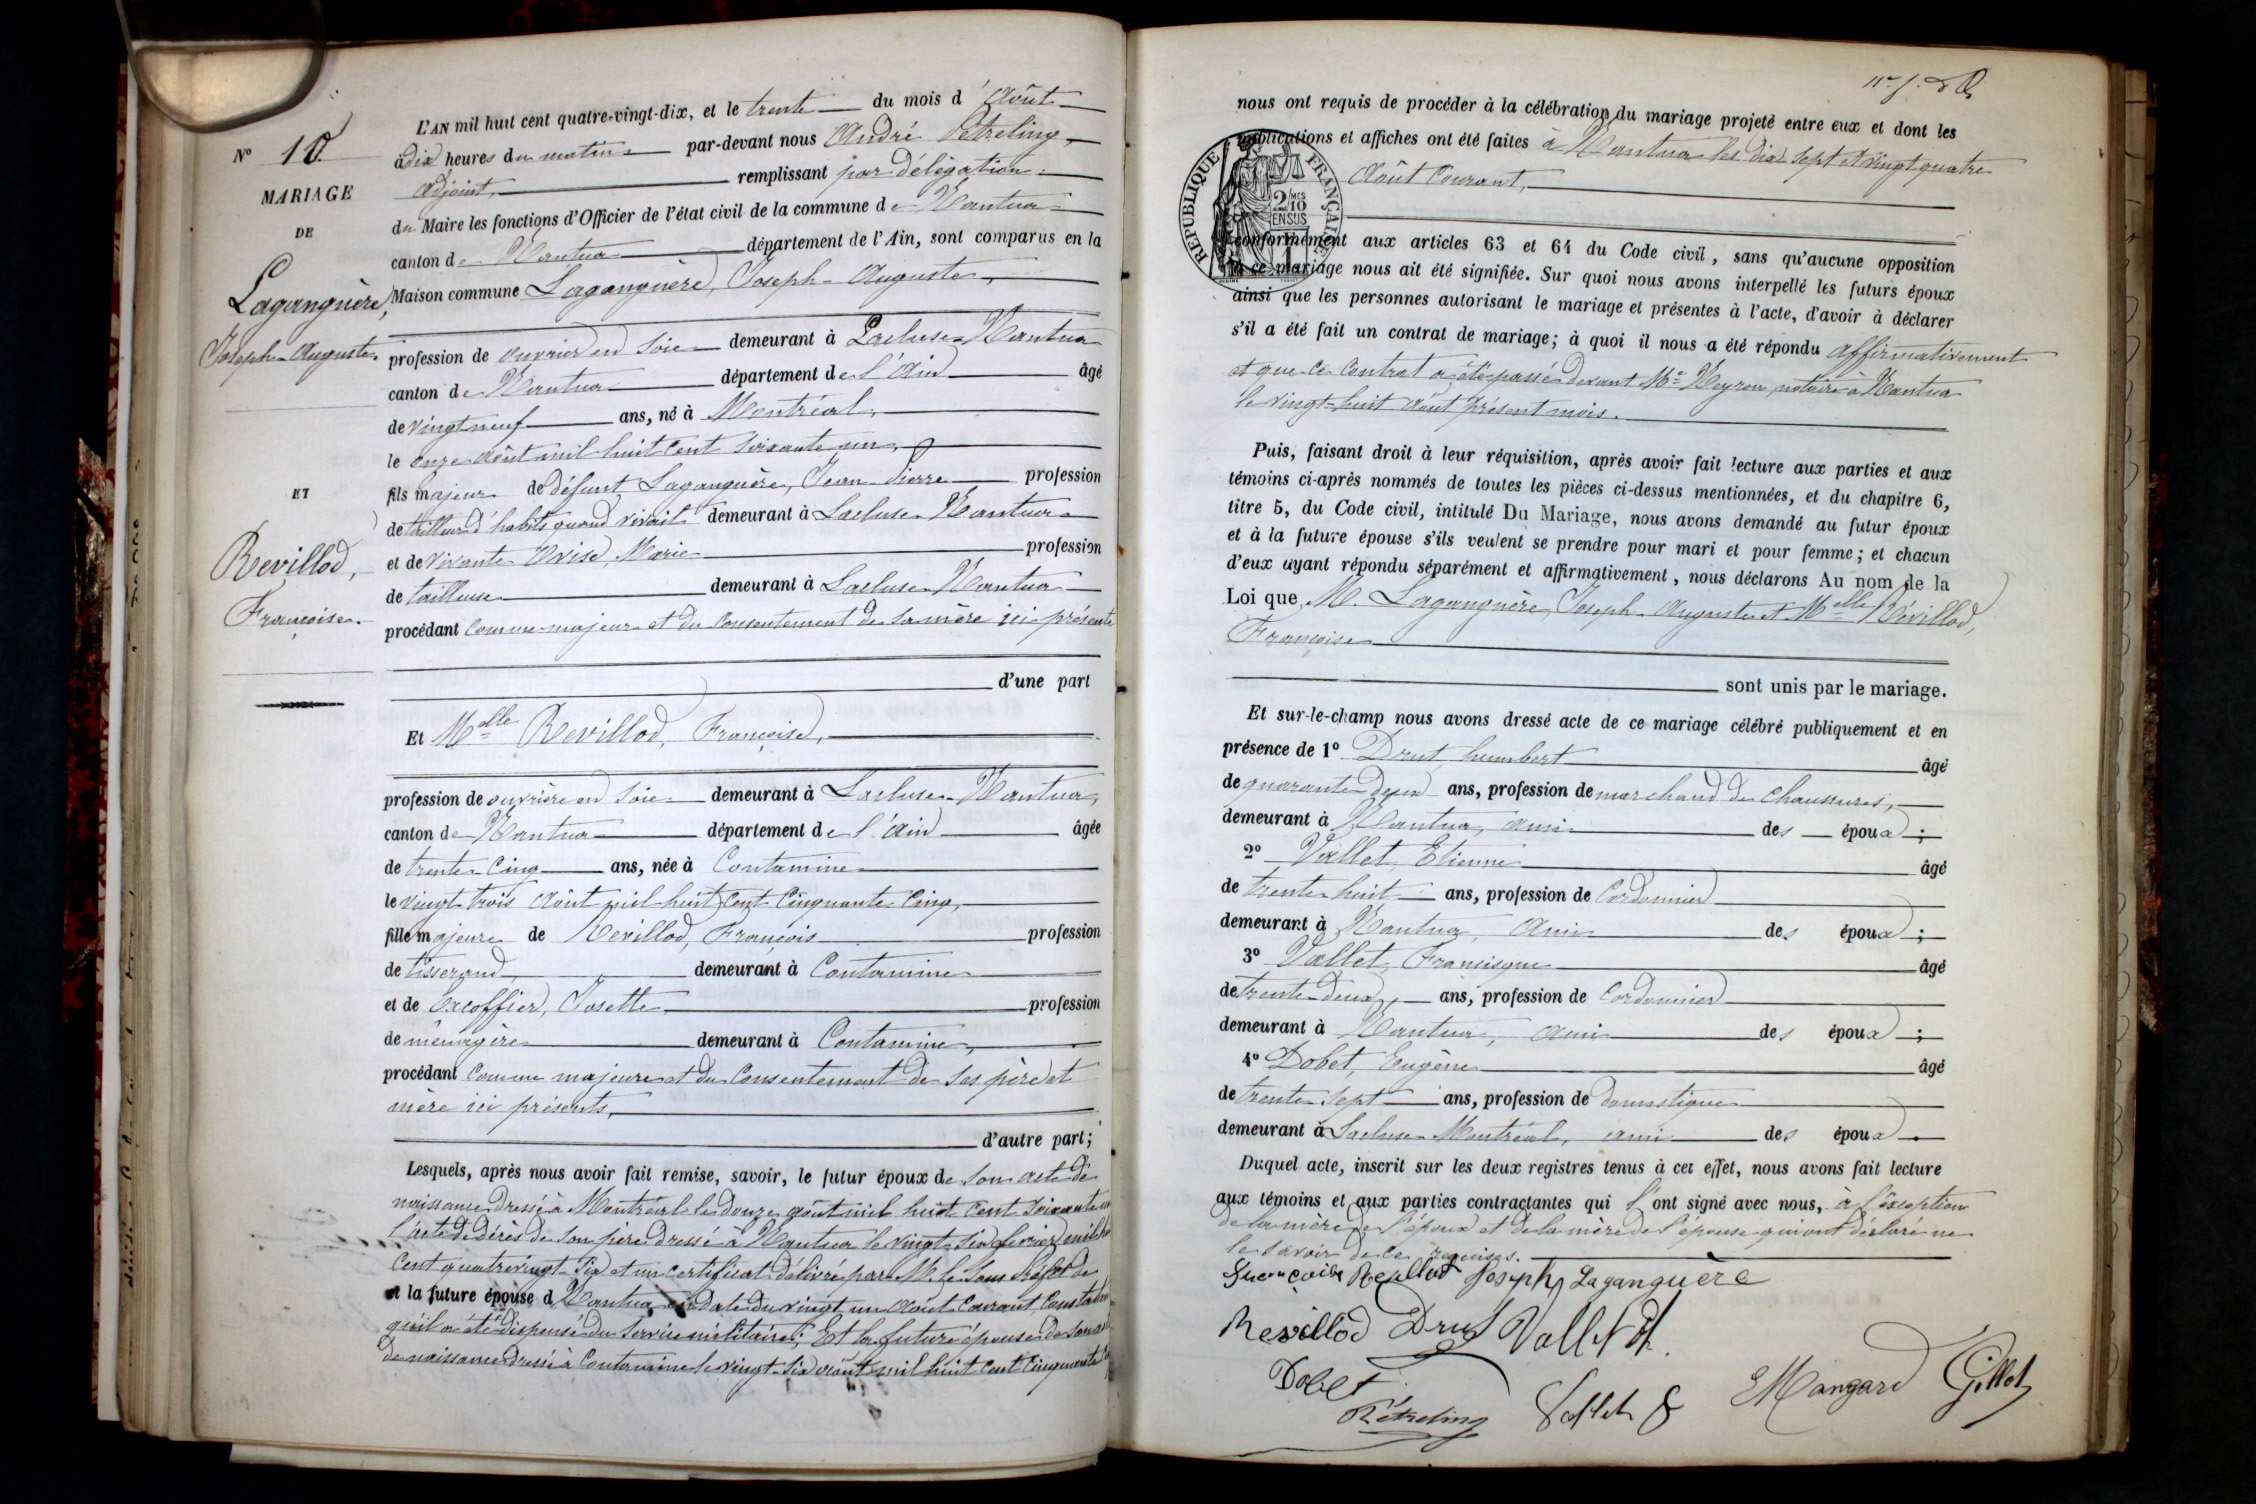 N° 10
MARIAGE
DE
Laganguère,
Joseph-Auguste.
ET
Revillod,
Françoise.
L'AN mil huit cent quatre-vingt-dix, et le trente du mois d'Août
à dix heures du matin par-devant nous André Pétreling,
adjoint, remplissant par délégation
du Maire les fonctions d'Officier de l'état civil de la commune de Nantua
canton de Nantua département de l'Ain, sont comparus en la
Maison commune Laganguère, Joseph-Auguste,
profession de ouvrier en soie demeurant à Lacluse-Nantua
canton de Nantua département de l'Ain âgé
de vingt neuf ans, né à Montréal,
le onze août mil huit cent soixante un,
fils majeur de défunt Laganguère, Jean-Pierre profession
de tailleur d'habits quand vivait demeurant à Lacluse-Nantua
et de vivante Marie profession
de tailleuse demeurant à Lacluse-Nantua
procédant comme majeur et du consentement de sa mère ici présente
d'une part
Et Melle Revillod, Françoise,
profession de ouvrière en soie demeurant à Lacluse-Nantua,
canton de Nantua département de l'Ain âgée
de trente cinq ans, née à Contamine
le vingt-trois août mil huit cent cinquante cinq,
fille majeure de Revillod, François profession
de tisserand demeurant à Contamine
et de Excoffier, Josette profession
de ménagère demeurant à Contamine,
procédant comme majeure et du consentement de ses père et
mère ici présents,
d'autre part;
Lesquels, après nous avoir fait remise, savoir, le futur époux de son acte de
naissance dressé à Montréal le douze août mil huit cent soixante un
l'acte de décès de son père dressé à Nantua le vingt-six février mil huit
cent quatre vingt-six et un certificat délivré par M. le Sous Préfet de
et la future épouse d Nantua en date du vingt un août courant, constatant
qu'il a été dispensé du service militaire; Et la future épouse de son acte
de naissance dressé à Contamine le vingt-six août mil huit cent cinquante
nous ont requis de procéder à la célébration du mariage projeté entre eux et dont les
publications et affiches ont été faites à Nantua les dix sept et vingt quatre
Août courant,
RÉPUBLIQUE FRANÇAISE
2/10MES
EN SUS
conformément aux articles 63 et 64 du Code civil, sans qu'aucune opposition
à ce mariage nous ait été signifiée. Sur quoi nous avons interpellé les futurs époux
ainsi que les personnes autorisant le mariage et présentes à l'acte, d'avoir à déclarer
s'il a été fait un contrat de mariage; à quoi il nous a été répondu affirmativement
et que ce contrat a été passé devant Me Neyron, notaire à Nantua
le vingt-huit août présent mois.
Puis, faisant droit à leur réquisition, après avoir fait lecture aux parties et aux
témoins ci-après nommés de toutes les pièces ci-dessus mentionnées, et du chapitre 6,
titre 5, du Code civil, intitulé Du Mariage, nous avons demandé au futur époux
et à la future épouse s'ils veulent se prendre pour mari et pour femme; et chacun
d'eux ayant répondu séparément et affirmativement, nous déclarons Au nom de la
Loi que M. Laganguère, Joseph-Auguste et Melle Révillod,
Françoise
sont unis par le mariage.
Et sur-le-champ nous avons dressé acte de ce mariage célébré publiquement et en
présence de 1° Drut, humbert âgé
de quarante deux ans, profession de marchand de chaussures,
demeurant à Nantua, ami des époux;
2° Vallet, Etienne âgé
de trente huit ans, profession de Cordonnier
demeurant à Nantua, Ami des époux;
3° Vallet, Francisque âgé
de trente-deux, ans, profession de Cordonnier
demeurant à Nantua, ami des époux;
4° Dobet, Eugène âgé
de trente sept ans, profession de domestique
demeurant à Lacluse-Montréal, ami des époux
Duquel acte, inscrit sur les deux registres tenus à cet effet, nous avons fait lecture
aux témoins et aux parties contractantes qui l'ont signé avec nous, à l'exception
de la mère de l'époux et de la mère de l'épouse qui ont déclaré ne
le savoir de ce requises.
Joseph Laganguère
Revillod Drut Vallet
Dobet Pétreling Vallet F Mangard Gillot